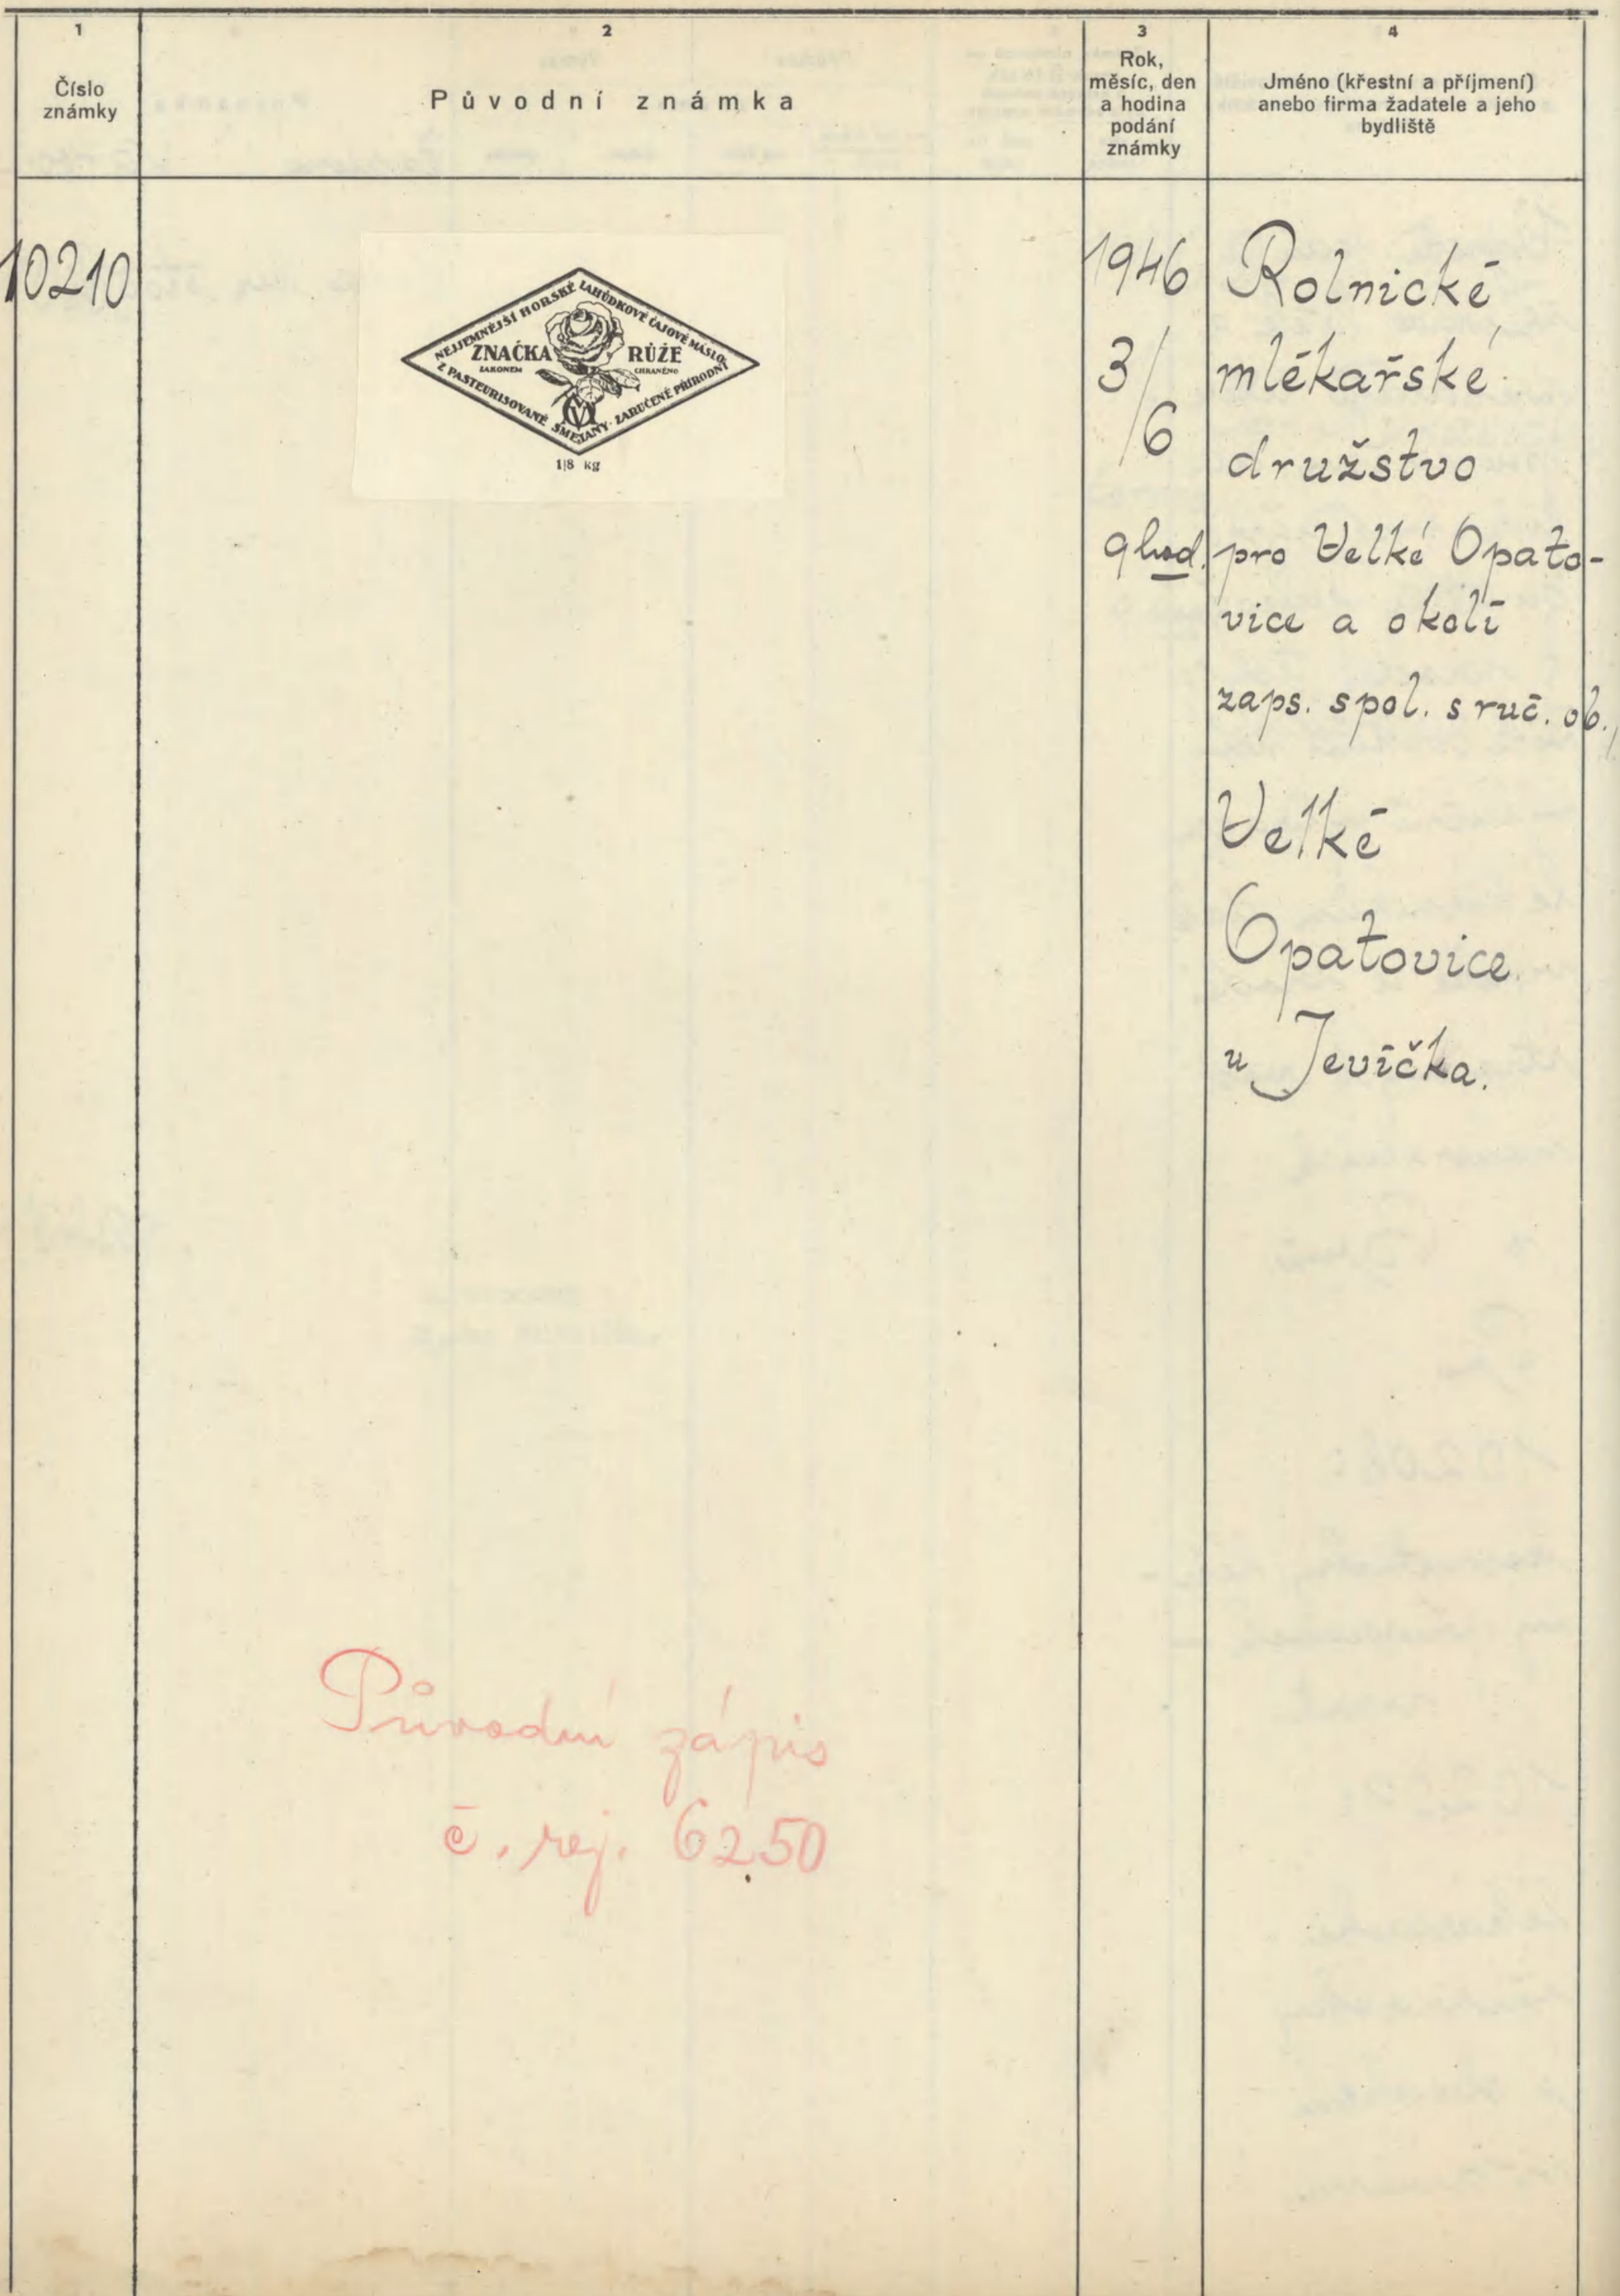 1
Číslo
známky
2
Původní známka
3
Rok,
měsíc, den
a hodina
podání
známky
4
Jméno (křestní a příjmení)
anebo firma žadatele a jeho
bydliště
10210
NEJJEMNĚJŠÍ HORSKÉ LAHŮDKOVÉ ČAJOVÉ MÁSLO
ZNAČKA RŮŽE
ZÁKONEM CHRÁNĚNO
Z PASTEURISOVANÉ SMETANY · ZARUČENĚ PŘÍRODNÍ
1/8 kg
1946
3/6
9 hod.
Rolnické
mlékařské
družstvo
pro Velké Opato-
vice a okolí
zaps. spol. s ruč. ob.,
Velké
Opatovice
u Jevíčka.
Původní zápis
č. rej. 6250